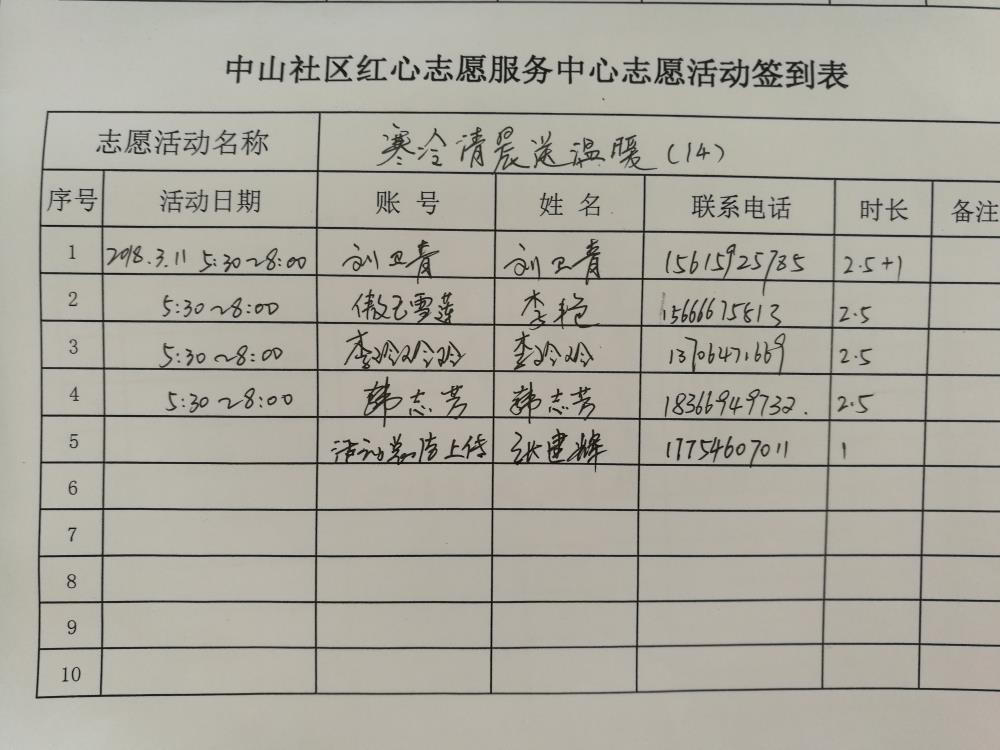 中山社区红心志愿服务中心志愿活动签到表
志愿活动名称 寒冷清晨送温暖(14)
序号 活动日期 账号 姓名 联系电话 时长 备注
1 2018.3.11 5:30~8:00 刘卫青 刘卫青 15615925785 2.5+1
2 5:30~8:00 傲玉雪莲 李艳 15666675813 2.5
3 5:30~8:00 李玲玲玲 李玲玲 13706471669 2.5
4 5:30~8:00 韩志芳 韩志芳 18366949732. 2.5
5 活动总结上传 张建辉 17754607011 1
6
7
8
9
10